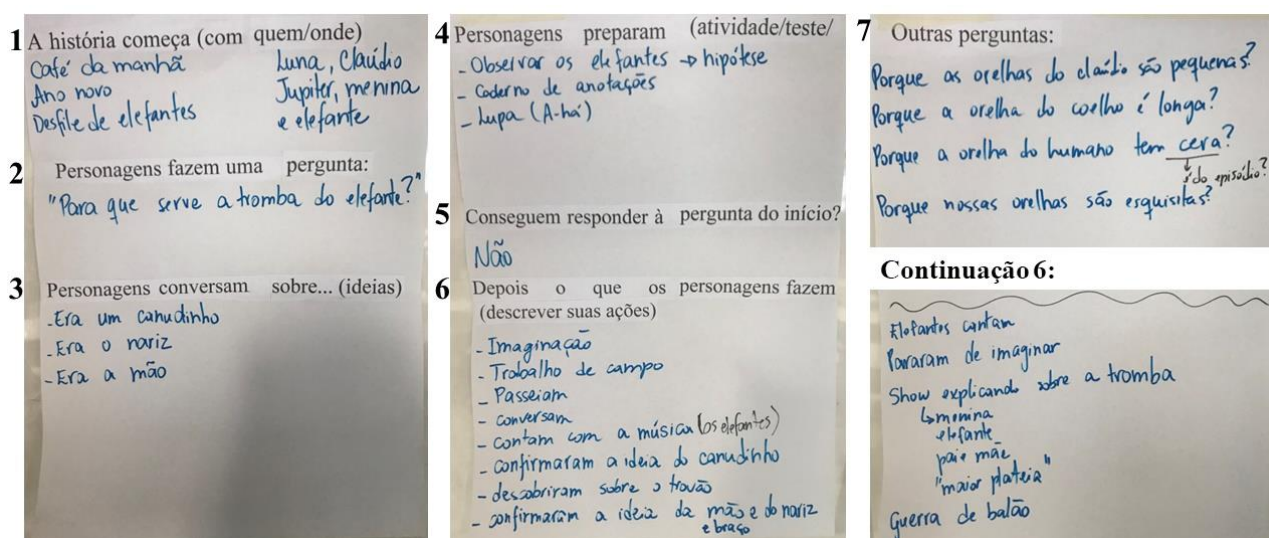 1 A história começa (com quem/onde)
Café da manhã Luna, Claúdio
Ano novo Jupiter, menina
Desfile de elefantes e elefante
2 Personagens fazem uma pergunta:
"Para que serve a tromba do elefante?"
3 Personagens conversam sobre... (ideias)
-Era um canudinho
-Era o nariz
-Era a mão
4 Personagens preparam (atividade/teste/
- Observar os elefantes → hipótese
- Caderno de anotações
- Lupa (A-há)
5 Conseguem responder à pergunta do início?
Não
6 Depois o que os personagens fazem
(descrever suas ações)
- Imaginação
- Trabalho de campo
- Passeiam
- conversam
- contam com a música (os elefantes)
- confirmaram a ideia do canudinho
- descobriram sobre o trovão
- confirmaram a ideia da mão e do nariz
e braço
7 Outras perguntas:
Porque as orelhas do claúdio são pequenas?
Porque a orelha do coelho é longa?
Porque a orelha do humano tem cera?
↓
é do episódio?
Porque nossas orelhas são esquisitas?
Continuação 6:
Elefantes cantam
Pararam de imaginar
Show explicando sobre a tromba
↳ menina
elefante
pai e mãe
"maior plateia"
Guerra de balão